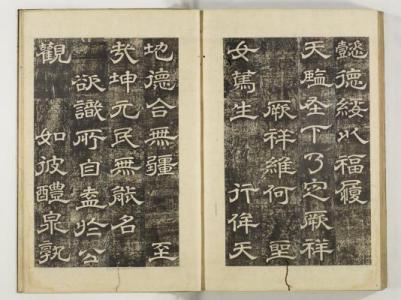 懿德綏以福履
天監在下乃定厥祥
厥祥維何　聖
女篤生　行侔天
地德合無疆　至
哉坤元民無能名
欲識所自盍於公
觀　如彼醴泉孰